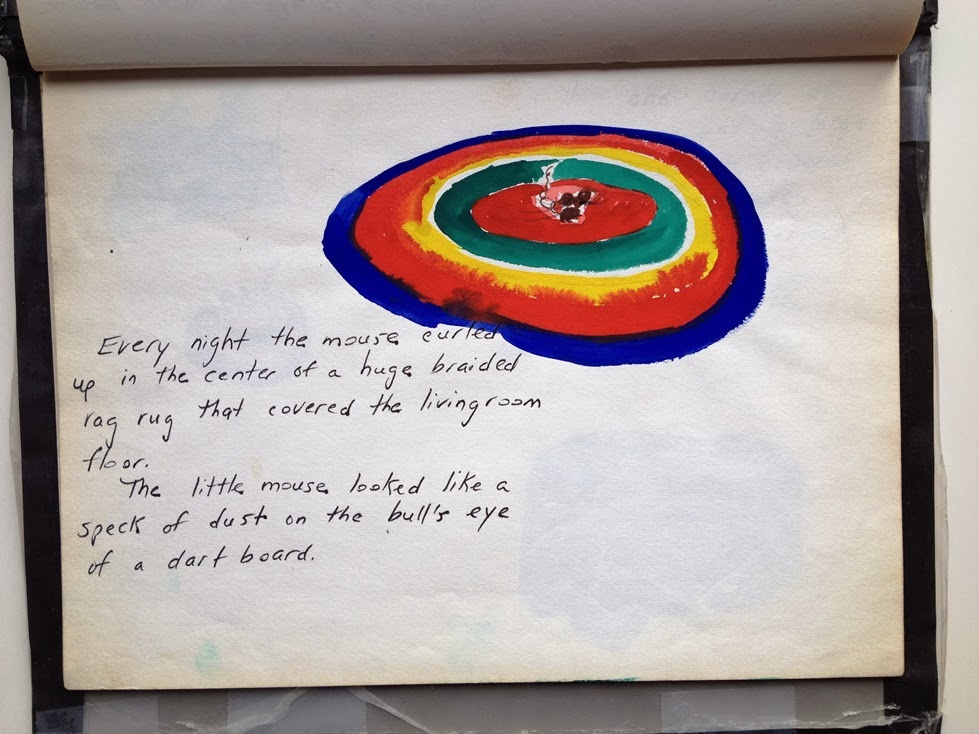 Every night the mouse curled
up in the center of a huge braided
rag rug that covered the livingroom
floor.
The little mouse looked like a
speck of dust on the bull's eye
of a dart board.